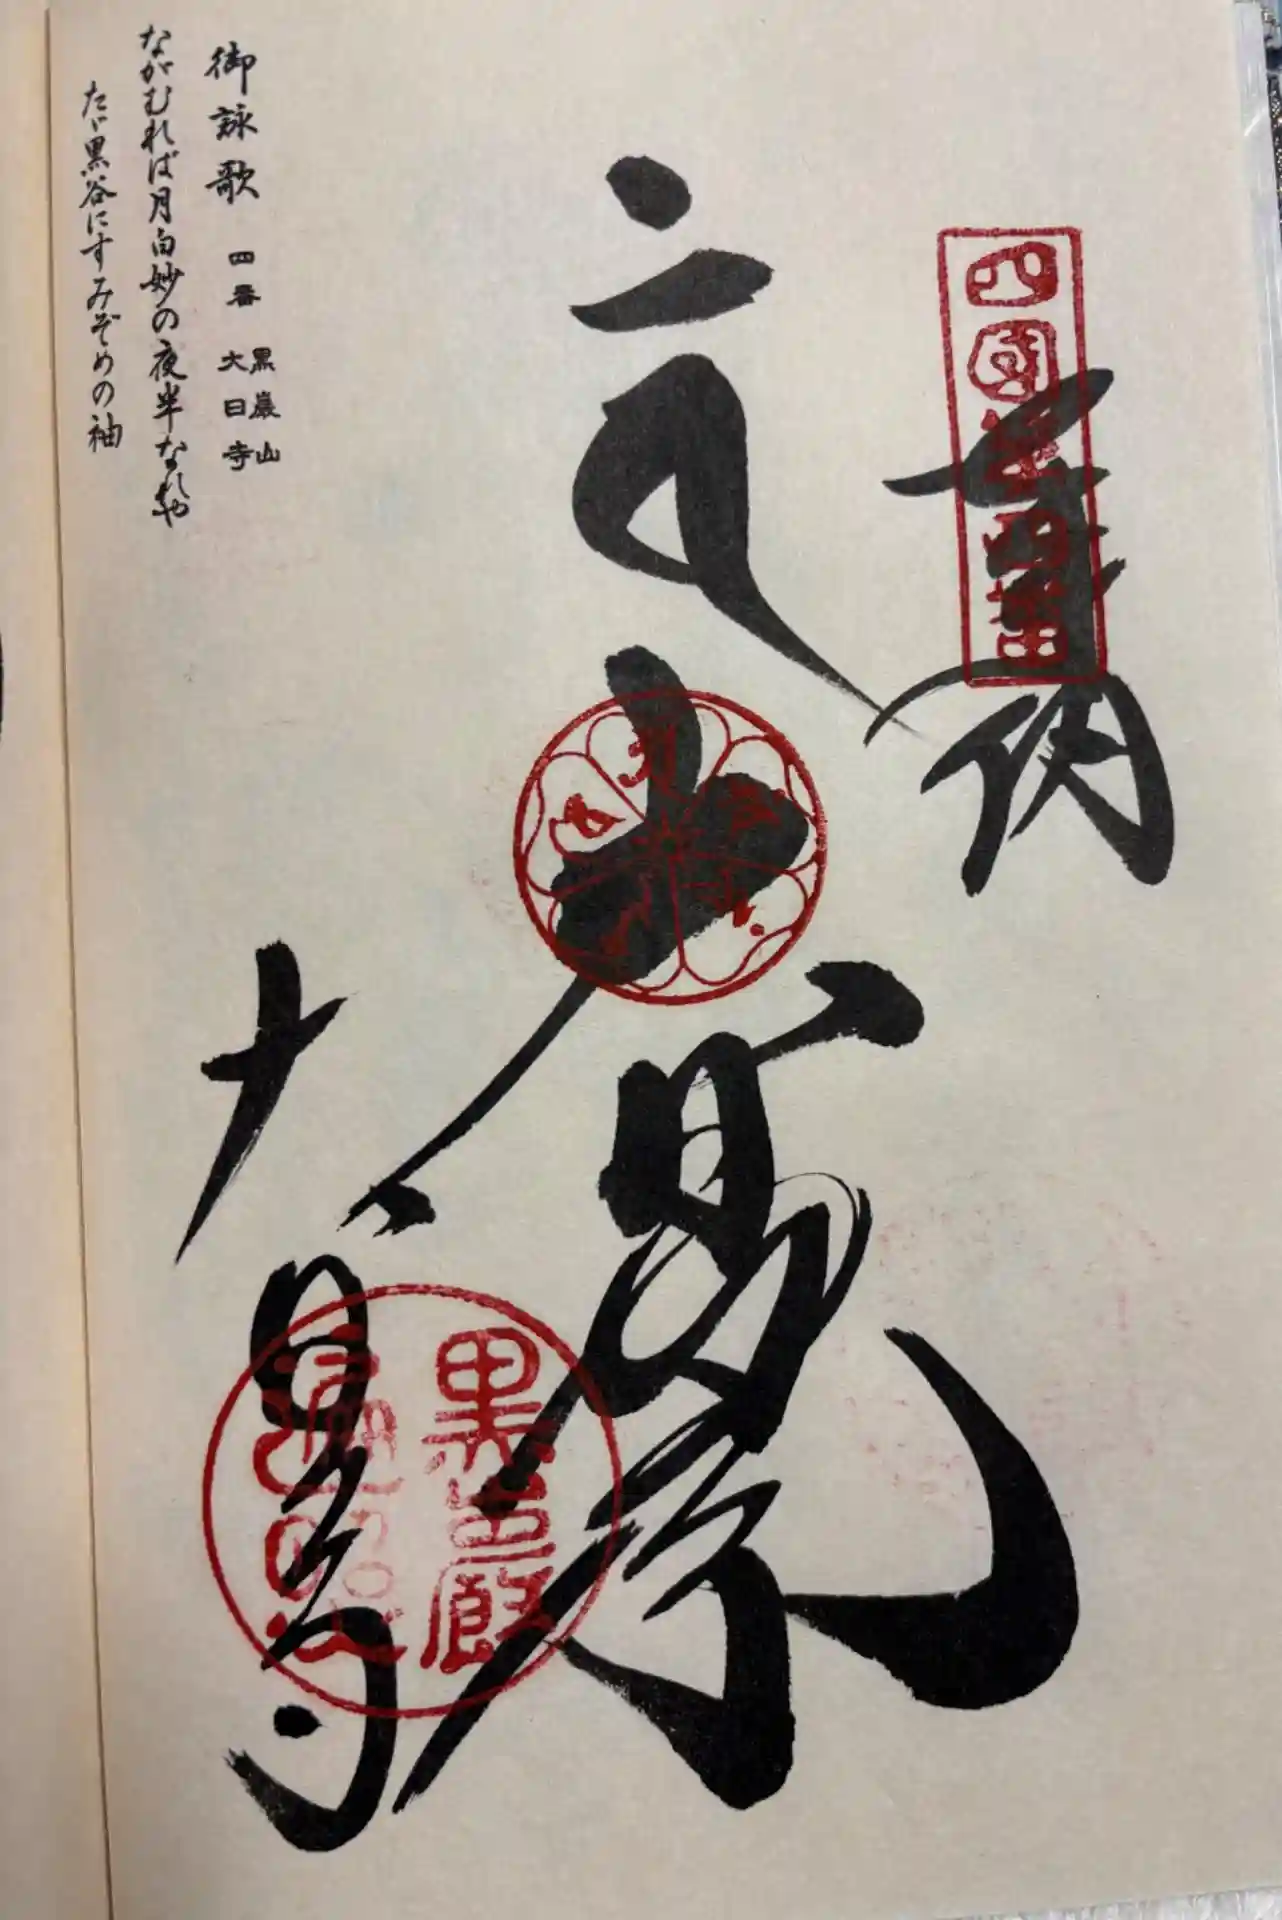 四國第四番
奉納
大日如来
大日寺
御詠歌 四番 黒巖山 大日寺
ながむれば月白妙の夜半なれや
たゞ黒谷にすみぞめの袖